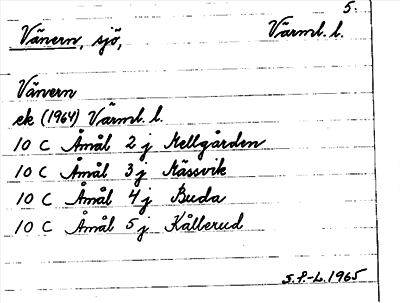 5.
Vänern, sjö, Värml. l.
Vänern
ek (1964) Värml. l.
10 C Åmål 2 j Mellgården
10 C Åmål 3 j Nässvik
10 C Åmål 4 j Buda
10 C Åmål 5 j Kållerud
S.P.-L. 1965